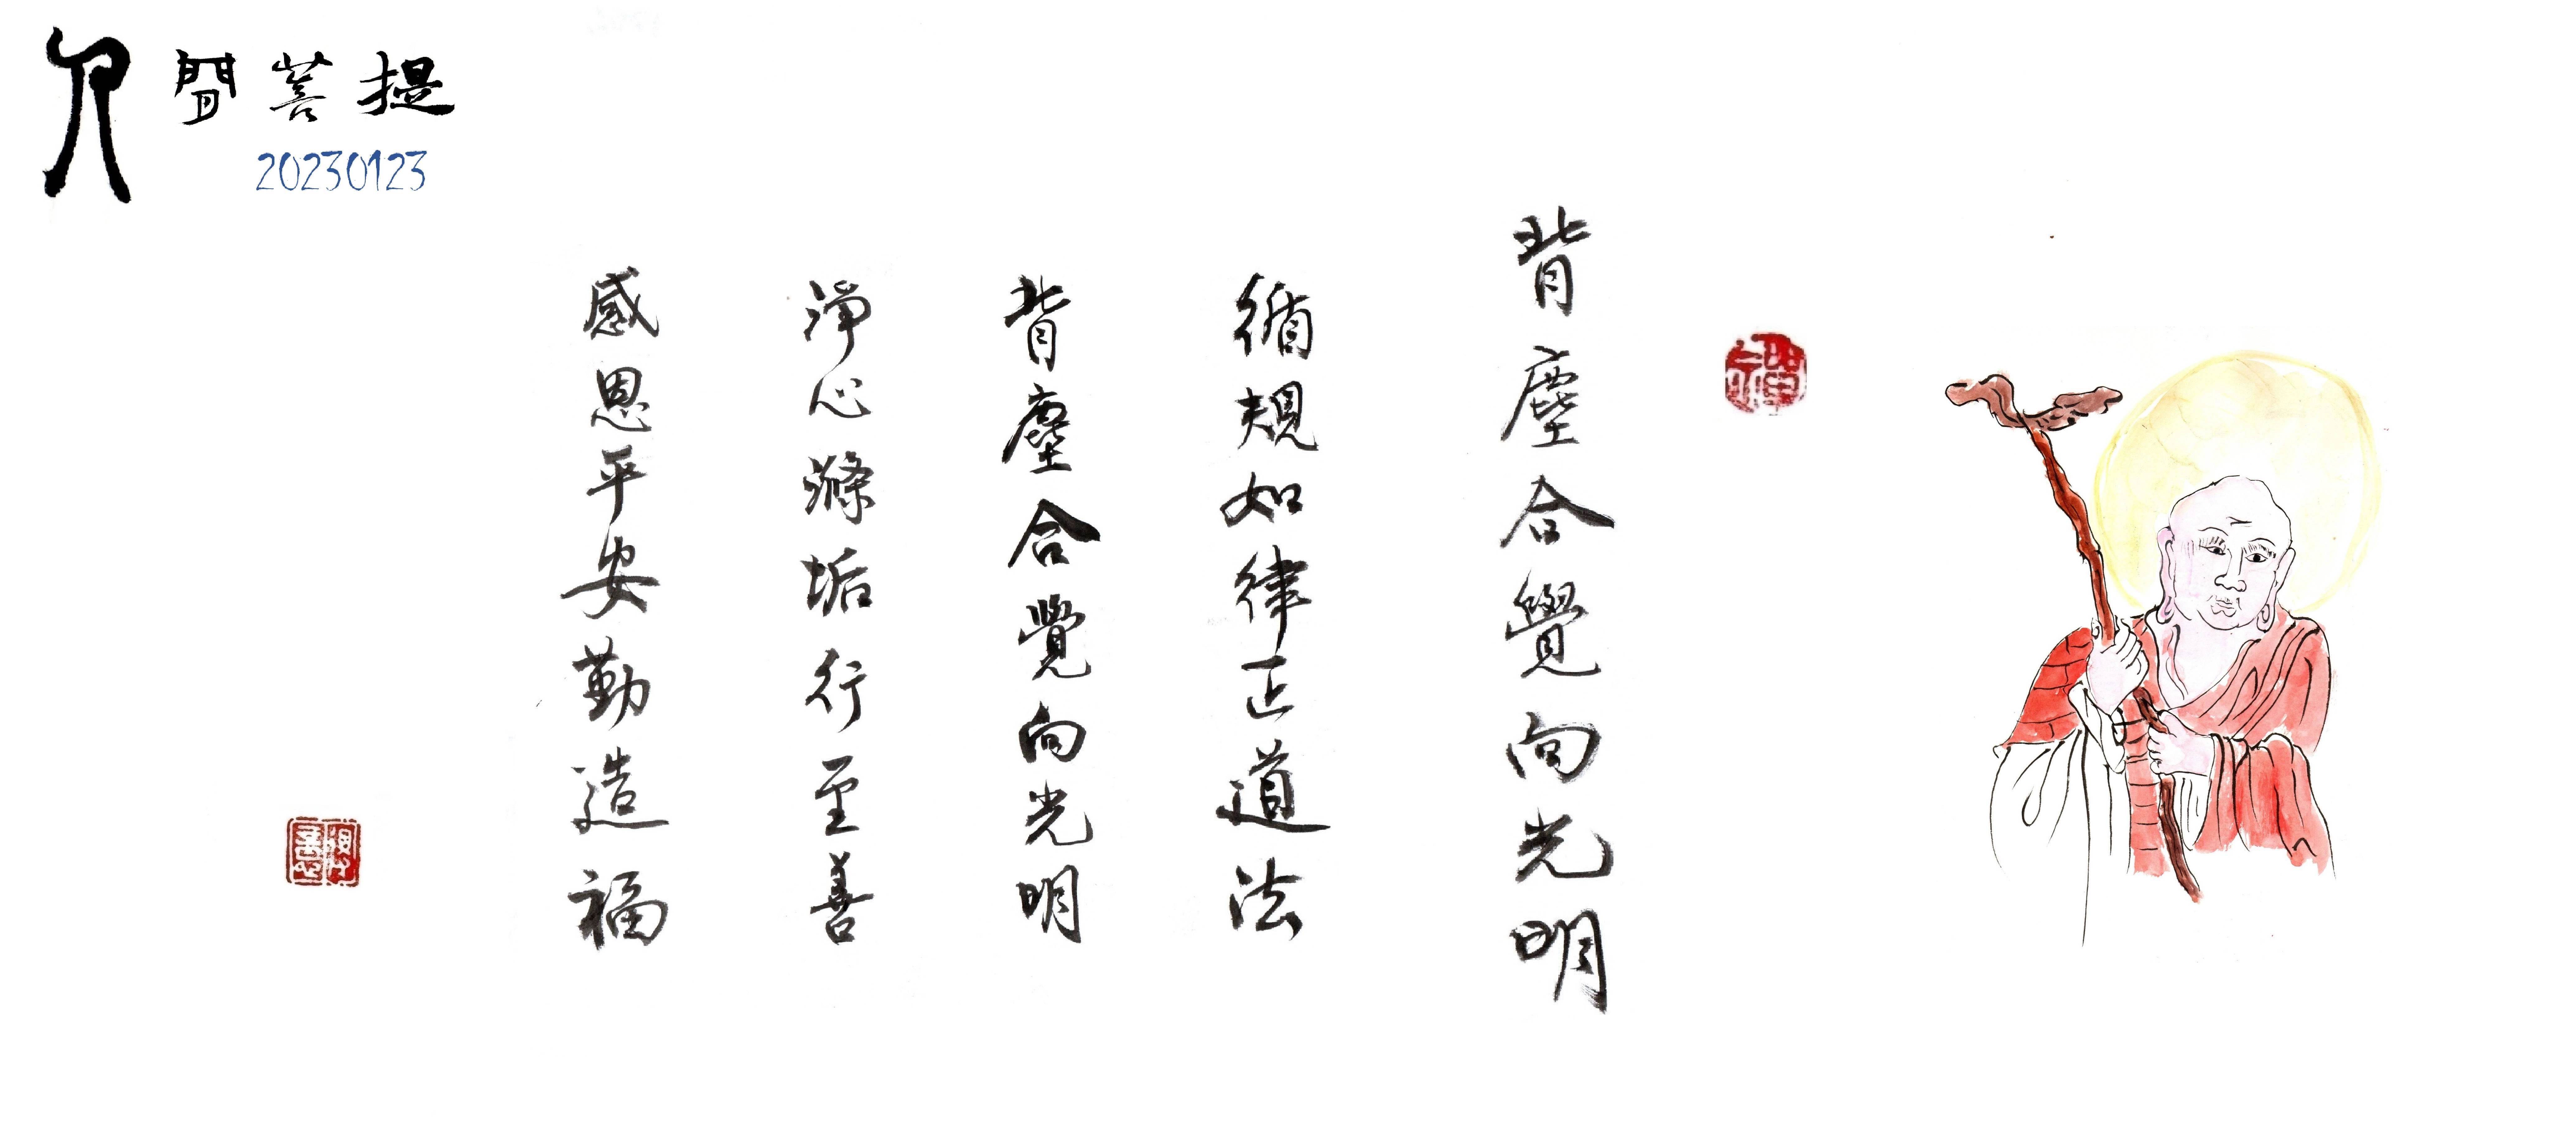 人間菩提
20230123
背塵合覺向光明
循規如律正道法
背塵合覺向光明
淨心滌垢行至善
感恩平安勤造福
禪